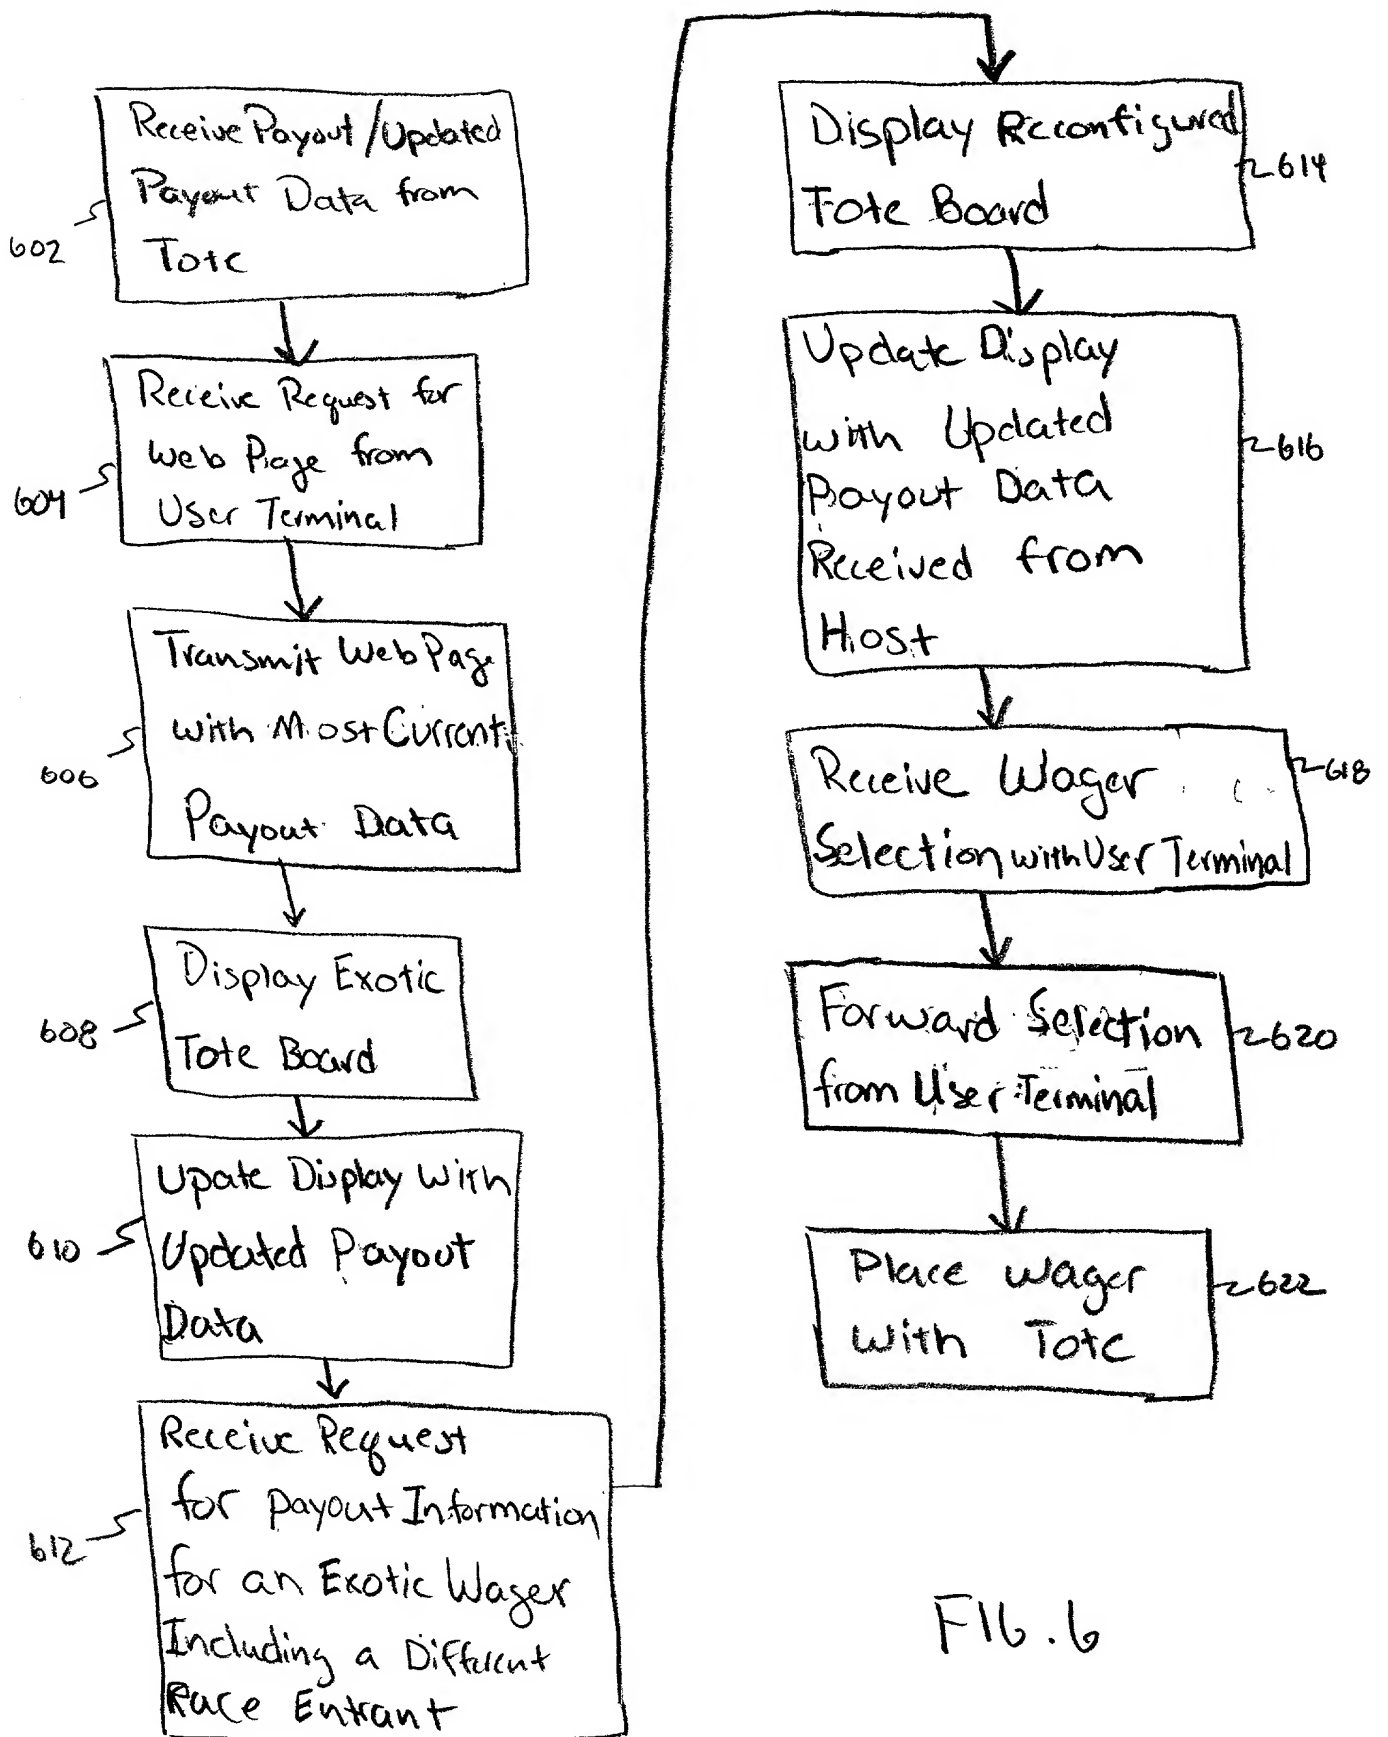 Receive Payout/Updated
Payout Data from
Tote
602
Receive Request for
Web Page from
User Terminal
604
Transmit Web Page
with Most Current
Payout Data
606
Display Exotic
Tote Board
608
Upate Display With
Updated Payout
Data
610
Receive Request
for payout Information
for an Exotic Wager
Including a Different
Race Entrant
612
Display Reconfigured
Tote Board
614
Update Display
with Updated
Payout Data
Received from
Host
616
Receive Wager
Selection with User Terminal
618
Forward Selection
from User Terminal
620
Place Wager
With Tote
622
FIG. 6